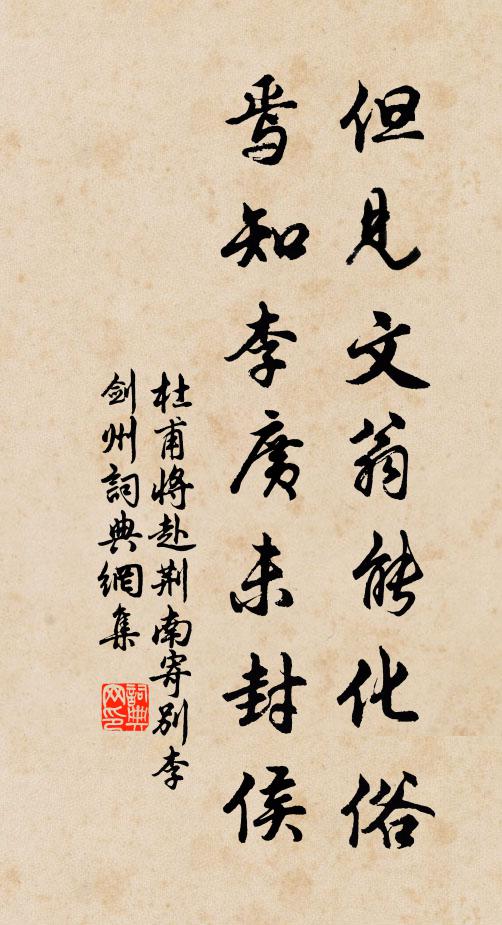 但見文翁能化俗
焉知李廣未封侯
杜甫將赴荆南寄別李
劍州詞典網集
詞典
网印